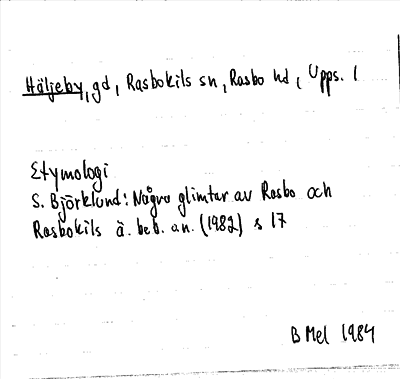 Häljeby, gd, Rasbokils sn, Rasbo hd, Upps. l
Etymologi
S. Björklund: Några glimtar av Rasbo och
Rasbokils ä. beb. an. (1982) s 17
B Mel 1984